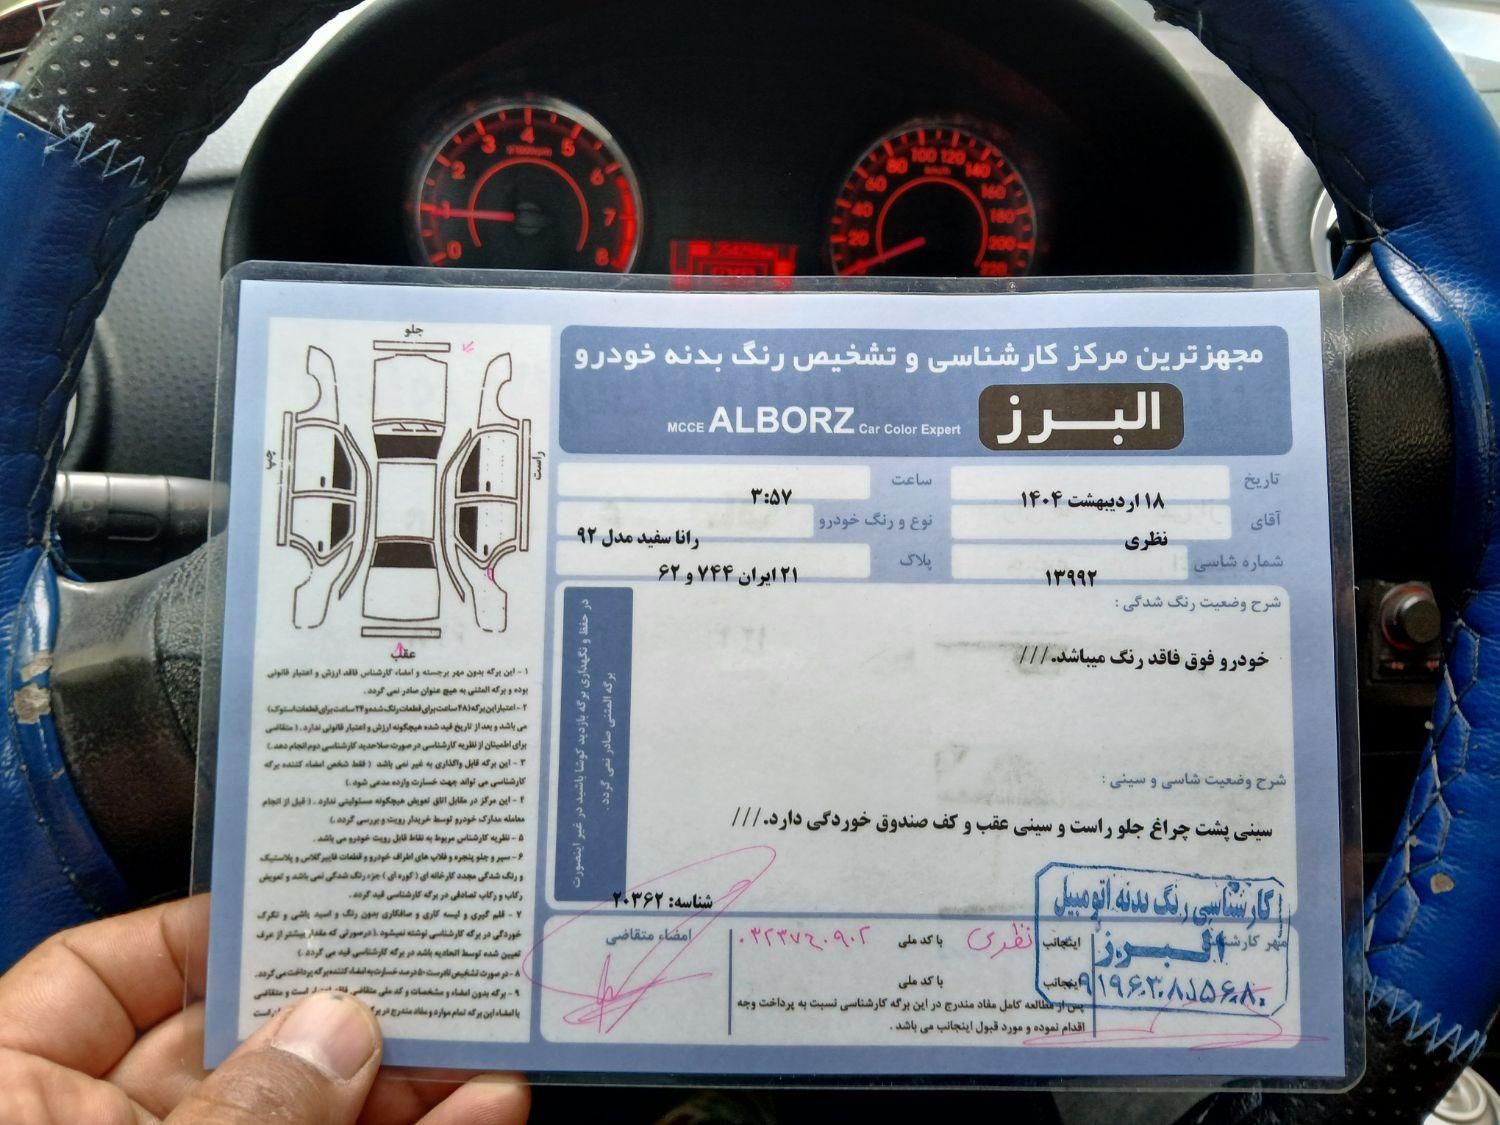 مجهزترین مرکز کارشناسی و تشخیص رنگ بدنه خودرو
البرز
MCCE ALBORZ Car Color Expert
تاریخ
۱۸ اردیبهشت ۱۴۰۴
ساعت
۳:۵۷
آقای
نظری
نوع و رنگ خودرو
رانا سفید مدل ۹۲
شماره شاسی
۱۳۹۹۲
پلاک
۲۱ ایران ۷۴۴ و ۶۲
شرح وضعیت رنگ شدگی :
خودرو فوق فاقد رنگ میباشد.///
شرح وضعیت شاسی و سینی :
سینی پشت چراغ جلو راست و سینی عقب و کف صندوق خوردگی دارد.///
شناسه: ۲۰۳۶۲
در حفظ و نگهداری برگه بازدید کوشا باشید در غیر اینصورت
برگه المثنی صادر نمی گردد .
مهر کارشناس
کارشناسی رنگ بدنه اتومبیل
البرز
اینجانب
نظری
با کد ملی
امضاء متقاضی
اینجانب
با کد ملی
پس از مطالعه کامل مفاد مندرج در این برگه کارشناسی نسبت به پرداخت وجه
اقدام نموده و مورد قبول اینجانب می باشد .
جلو
چپ
راست
عقب
۱ - این برگه بدون مهر برجسته و امضاء کارشناس فاقد ارزش و اعتبار قانونی
بوده و برگه المثنی به هیچ عنوان صادر نمی گردد .
۲ - اعتبار این برگه (۴۸ ساعت برای قطعات رنگ شده و ۲۴ ساعت برای قطعات استوک)
می باشد و بعد از تاریخ قید شده هیچگونه ارزش و اعتبار قانونی ندارد . ( متقاضی
برای اطمینان از نظریه کارشناسی در صورت صلاحدید کارشناسی دوم انجام دهد .)
۳ - این برگه قابل واگذاری به غیر نمی باشد ( فقط شخص امضاء کننده برگه
کارشناسی می تواند جهت خسارت وارده مدعی شود .)
۴ - این مرکز در مقابل اتاق تعویض هیچگونه مسئولیتی ندارد . ( قبل از انجام
معامله مدارک خودرو توسط خریدار رویت و بررسی گردد .)
۵ - نظریه کارشناس مربوط به نقاط قابل رویت خودرو می باشد .
۶ - سپر و جلو پنجره و فلاپ های اطراف خودرو و قطعات فایبرگلاس و پلاستیک
و رنگ شدگی مجدد کارخانه ای ( کوره ای ) جزء رنگ شدگی نمی باشد و تعویض
رکاب و رکاب تصادفی در برگه کارشناسی قید گردد .
۷ - قلم گیری و لیسه کاری و صافکاری بدون رنگ و اسید پاشی و تگرگ
خوردگی در برگه کارشناسی نوشته نمیشود . ( درصورتی که مقدار بیشتر از عرف
تعیین شده توسط اتحادیه باشد در برگه کارشناسی قید می گردد .)
۸ - در صورت تشخیص نادرست ۵۰ درصد خسارت به امضاء کننده برگه پرداخت می گردد .
۹ - برگه بدون امضاء و مشخصات و کد ملی متقاضی فاقد اعتبار است و متقاضی
با امضاء این برگه تمام موارد و مفاد مندرج در
0
1
2
3
4
5
6
7
8
20
40
60
80
100
120
140
160
180
200
220
km/h